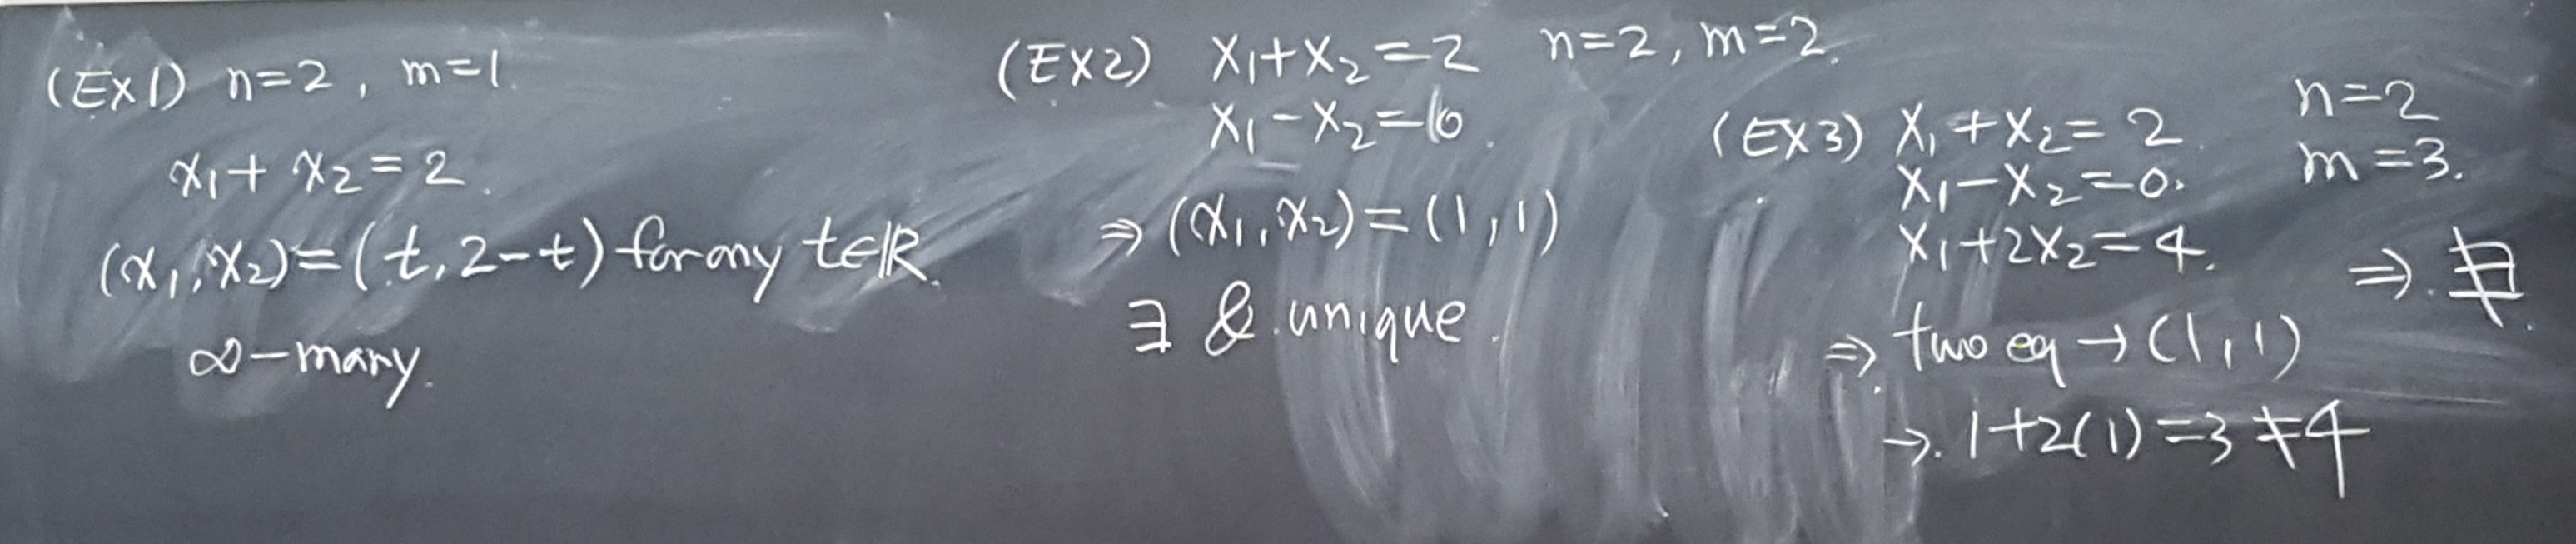 (Ex1) n=2, m=1.
x₁+ x₂=2.
(x₁,x₂)=(t,2-t) for any t∈ℝ.
∞-many.
(EX2) x₁+x₂=2 n=2, m=2.
x₁-x₂=0.
⇒ (x₁,x₂)=(1,1)
∃ & unique.
(EX3) x₁+x₂=2. n=2
x₁-x₂=0. m=3.
x₁+2x₂=4. ⇒. ∄.
⇒. two eq → (1,1)
→. 1+2(1)=3≠4